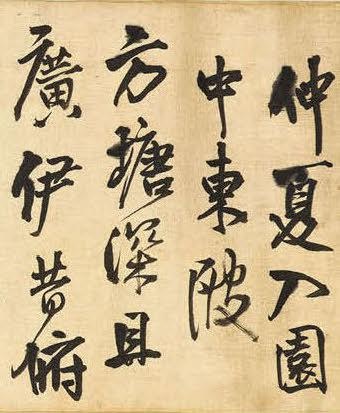 仲夏入園
中東陂
方塘深且
廣伊昔俯